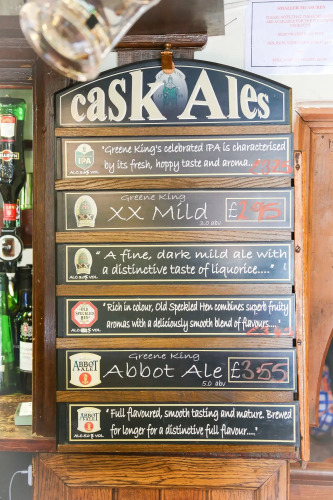 cask Ales
IPA
"Greene King's celebrated IPA is characterised
by its fresh, hoppy taste and aroma...
Greene King
XX Mild
3.0 abv
£2.95
"A fine, dark mild ale with
a distinctive taste of liquorice...."
OLD SPECKLED HEN
"Rich in colour, Old Speckled Hen combines superb fruity
aromas with a deliciously smooth blend of flavours....
Greene King
Abbot Ale
5.0 abv
£3.55
ABBOT ALE
"Full flavoured, smooth tasting and mature. Brewed
for longer for a distinctive full flavour...."
ABBOT ALE